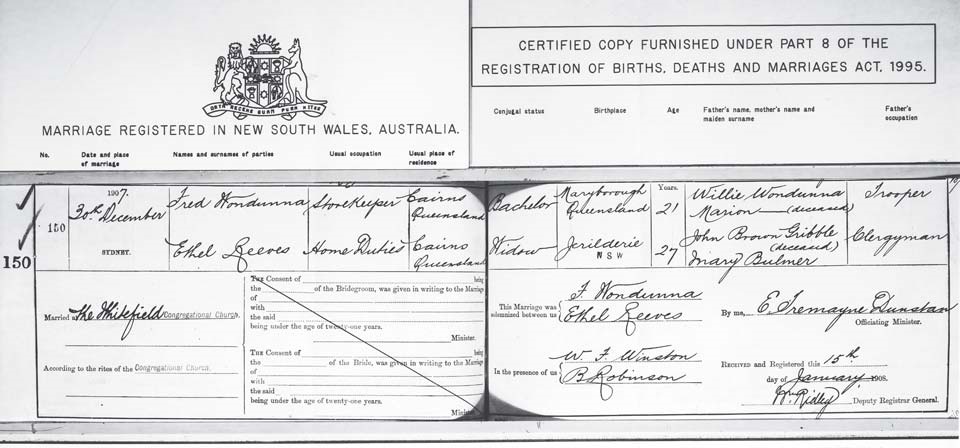 ORTA RECENS QUAM PURA NITES
MARRIAGE REGISTERED IN NEW SOUTH WALES, AUSTRALIA.
CERTIFIED COPY FURNISHED UNDER PART 8 OF THE
REGISTRATION OF BIRTHS, DEATHS AND MARRIAGES ACT, 1995.
No. Date and place of marriage Names and surnames of parties Usual occupation Usual place of residence Conjugal status Birthplace Age Father's name, mother's name and maiden surname Father's occupation
150
150
1907.
30th December
SYDNEY.
Fred Wondunna Storekeeper Cairns Queensland Bachelor Maryborough Queensland Years. 21 Willie Wondunna Trooper
Marion (deceased)
Ethel Reeves Home Duties Cairns Queensland Widow Jerilderie NSW 27 John Brown Gribble (deceased) Clergyman
Mary Bulmer
Married at The Whitefield Congregational Church,
According to the rites of the Congregational Church.
The Consent of being
the of the Bridegroom, was given in writing to the Marriage
of
with
the said
being under the age of twenty-one years.
Minister.
The Consent of being
the of the Bride, was given in writing to the Marriage
of
with
the said
being under the age of twenty-one years.
Minister
This Marriage was solemnized between us
F. Wondunna
Ethel Reeves
By me, E. Tremayne Dunstan
Officiating Minister.
In the presence of us
W. F. Winston
B Robinson
RECEIVED AND REGISTERED this 15th
day of January, 1908.
Wm Ridley Deputy Registrar General.